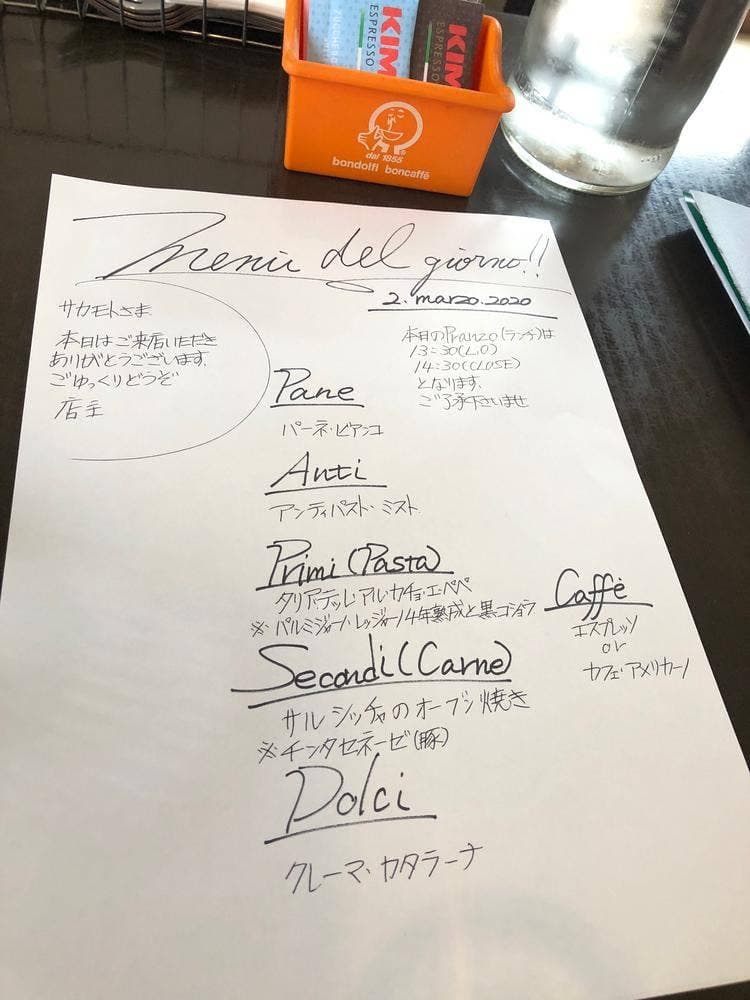 KIM
ESPRESSO
KIM
ESPRESSO
dal 1855
bondolfi boncaffē
Menù del giorno!!
2. marzo. 2020
サカモトさま
本日はご来店いただき
ありがとうございます。
ごゆっくりどうぞ
店主
本日のPranzo(ランチ)は
13:30(L.O)
14:30(CLOSE)
となります。
ご了承下さいませ
Pane
パーネ・ビアンコ
Anti
アンティパスト・ミスト
Primi(Pasta)
タリアテッレ・アル・カチョ・エ・ペペ
※パルミジャーノ・レッジャーノ4年熟成と黒コショウ
Secondi(Carne)
サルシッチャのオーブン焼き
※チンタセネーゼ(豚)
Dolci
クレーマ・カタラーナ
Caffè
エスプレッソ
or
カフェ・アメリカーノ